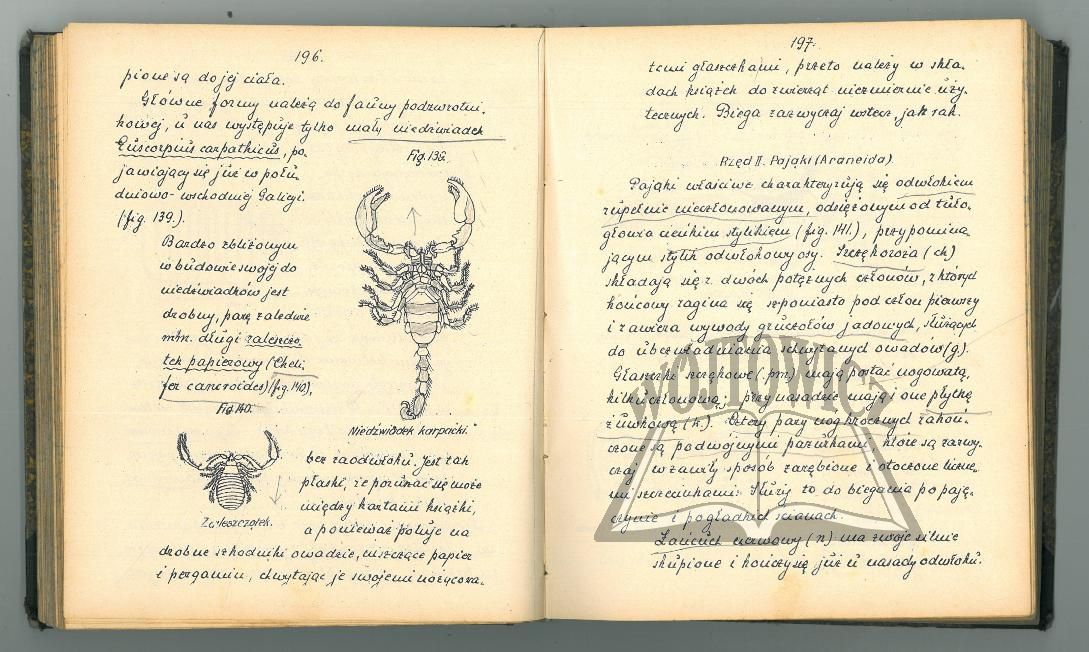 196.
pione są do jej ciała.
Główne formy należą do fauny podzwrotni.
kowej, u nas występuje tylko mały niedźwiadek
Euscorpius carpathicus, po.
jawiający się już w połu.
dniowo-wschodniej Galicyi.
(fig. 139.).
Fig. 139.
Bardzo zbliżonym
w budowie swojej do
niedźwiadków jest
drobny, parę zaledwie
m/m. długi zaleszczo.
tek papierowy (Cheli.
fer cancroides) (fig. 140),
Fig. 140.
Niedźwiadek karpacki.
Zaleszczotek.
bez zaodwłoku. Jest tak
płaski, że poruszać się może
między kartami książki,
a ponieważ poluje na
drobne szkodniki owadzie, niszczące papier
i pergamin, chwytając je swojemi nożycowa.
197.
temi głaszczkami, przeto należy w skła.
dach książek do zwierząt niezmiernie uży.
tecznych. Biega zazwyczaj wstecz, jak rak.
Rzęd II. Pająki (Araneida).
Pająki właściwe charakteryzują się odwłokiem
zupełnie nieczłonowanym, odsiężonym od tuło.
głowia cienkim stylikiem (fig. 141.), przypomina
jącym stylik odwłokowy osy. Szczękoroża (ch)
składają się z dwóch potężnych członów, z których
końcowy zagina się szponiasto pod człon pierwszy
i zawiera wywody gruczołów jadowych, służących
do ubezwładniania schwytanych owadów (g.).
Głaszczki szczękowe (pm) mają postać nogowatą,
kilkuczłonową; przy nasadzie mają i one płytkę
żuwkową (k.). Cztery pary nóg krocznych zakoń.
czone są podwójnymi pazurkami, które są zazwy.
czaj w zawiły sposób zazębione i otoczone liczne.
mi szczecinkami. Służy to do biegania po paję.
czynie i po gładkich ścianach.
Łańcuch nerwowy (n) ma zwoje silnie
skupione i kończy się już u nasady odwłoku.
WÓJTOWICZ